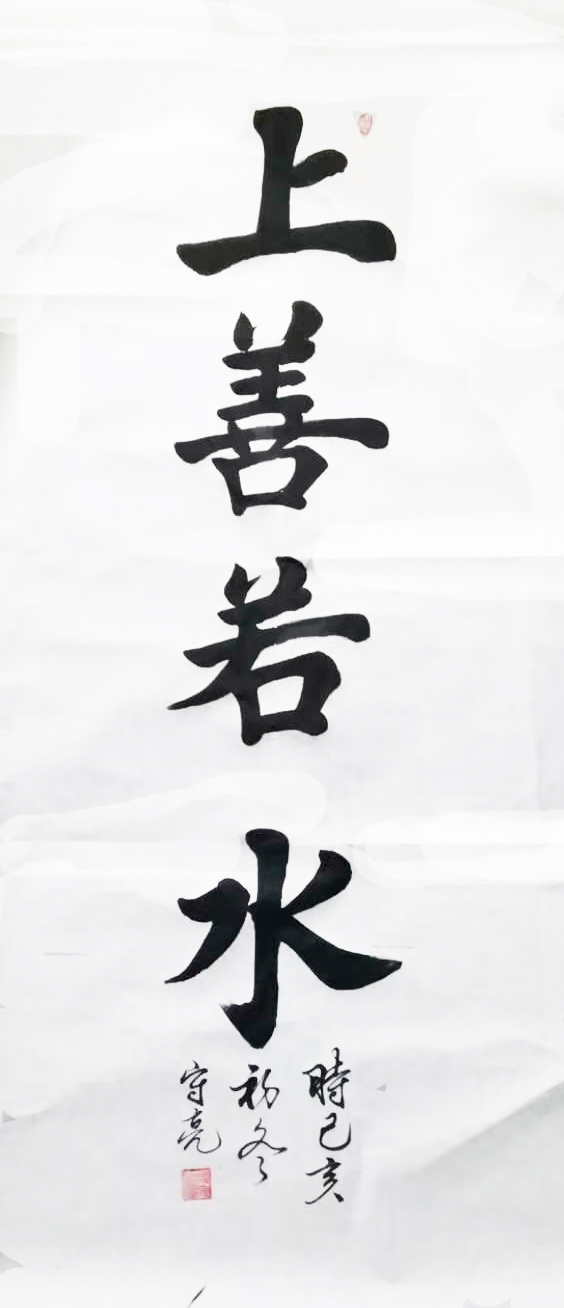 上善若水
時己亥
初冬
守亮